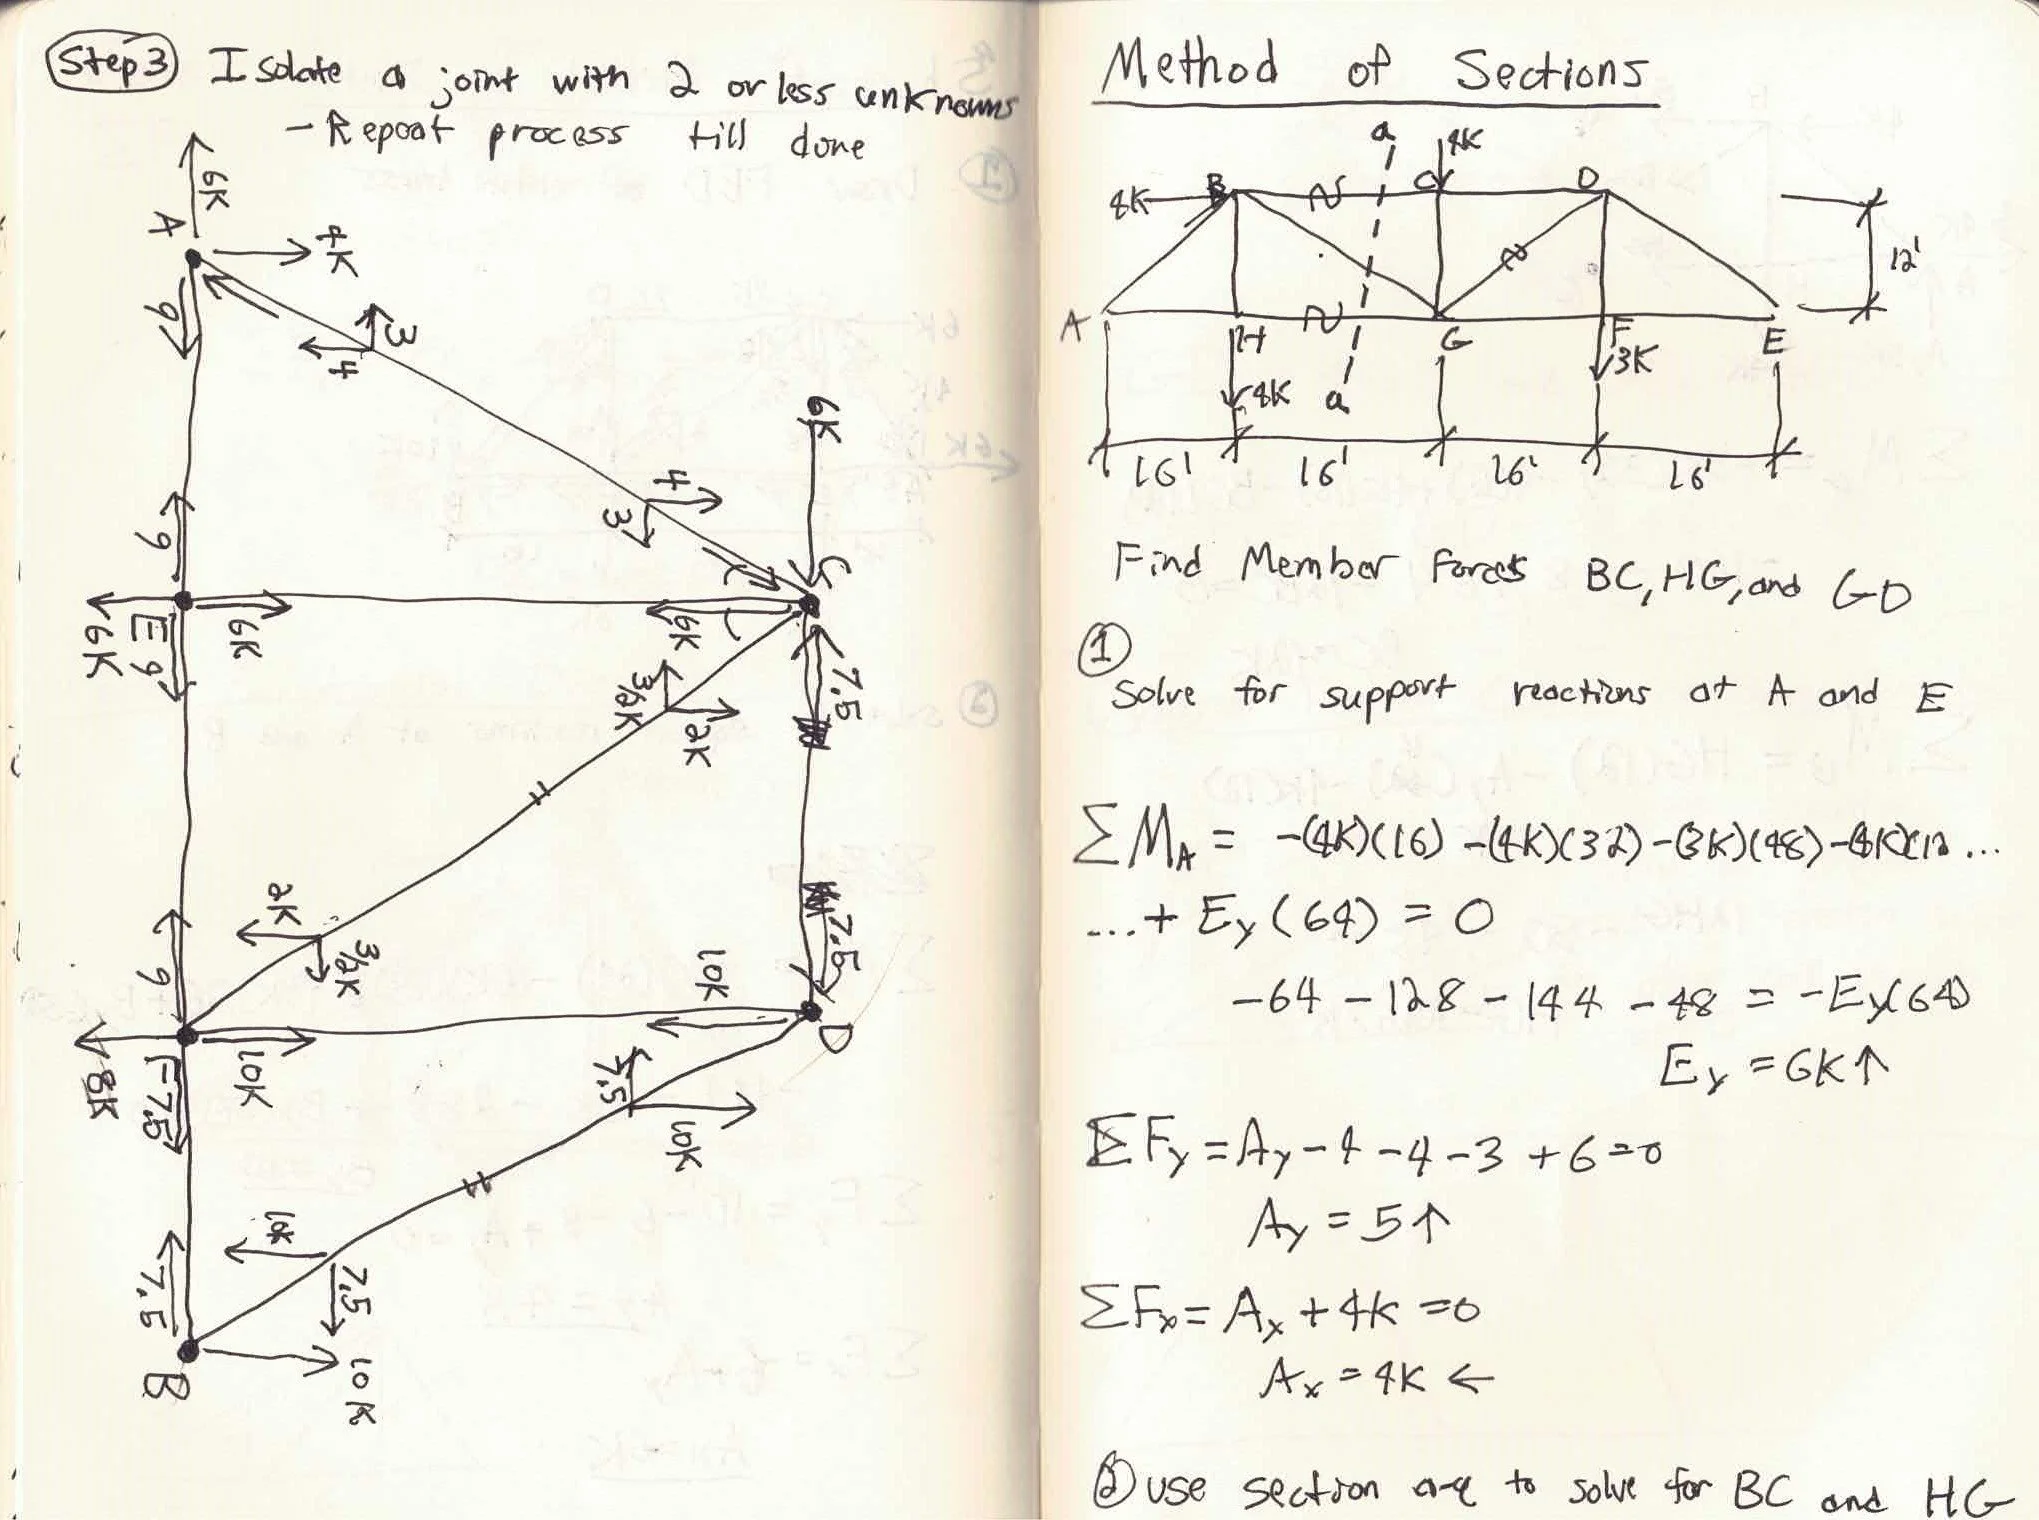 Step 3 Isolate a joint with 2 or less unknowns
- Repeat process till done
6K
A
4K
9
3
4
6K
4
3
C
9
6K
E
6K
9
6K
7.5
3/2K
2K
2K
3/2K
7.5
9
10K
D
8K
F
10K
7.5
7.5
10K
10K
7.5
7.5
10K
B
Method of Sections
a
4K
4K
B
C
D
12'
A
H
G
F
E
4K
a
3K
16'
16'
16'
16'
Find Member Forces BC, HG, and GD
1
Solve for support reactions at A and E
ΣM_A = -(4K)(16) -(4K)(32) -(3K)(48) -4K(12 ...
...+ E_y (64) = 0
-64 - 128 - 144 - 48 = -E_y(64)
E_y = 6K↑
ΣF_y = A_y - 4 - 4 - 3 + 6 = 0
A_y = 5↑
ΣF_x = A_x + 4K = 0
A_x = 4K ←
2 use section a-a to solve for BC and HG